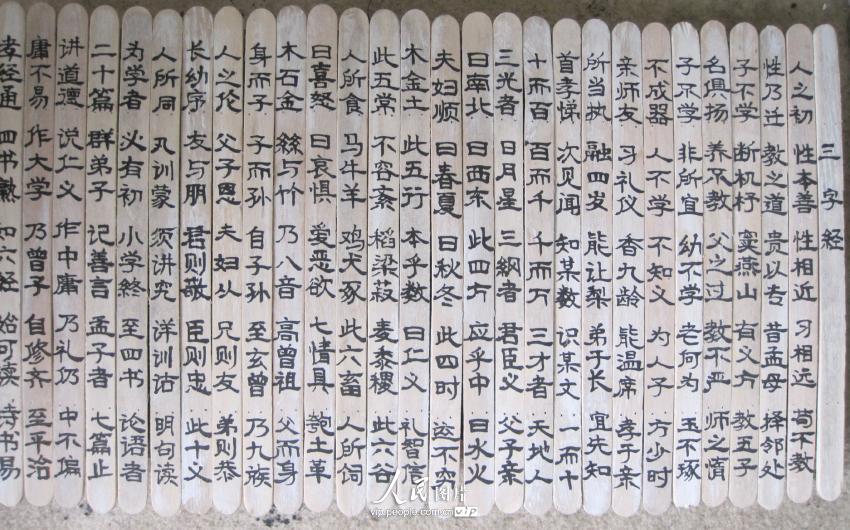 三字经
人之初 性本善 性相近 习相远 苟不教
性乃迁 教之道 贵以专 昔孟母 择邻处
子不学 断机杼 窦燕山 有义方 教五子
名俱扬 养不教 父之过 教不严 师之惰
子不学 非所宜 幼不学 老何为 玉不琢
不成器 人不学 不知义 为人子 方少时
亲师友 习礼仪 香九龄 能温席 孝于亲
所当执 融四岁 能让梨 弟于长 宜先知
首孝悌 次见闻 知某数 识某文 一而十
十而百 百而千 千而万 三才者 天地人
三光者 日月星 三纲者 君臣义 父子亲
夫妇顺 曰春夏 曰秋冬 此四时 运不穷
曰南北 曰西东 此四方 应乎中 曰水火
木金土 此五行 本乎数 曰仁义 礼智信
此五常 不容紊 稻粱菽 麦黍稷 此六谷
人所食 马牛羊 鸡犬豕 此六畜 人所饲
曰喜怒 曰哀惧 爱恶欲 七情具 匏土革
木石金 丝与竹 乃八音 高曾祖 父而身
身而子 子而孙 自子孙 至玄曾 乃九族
人之伦 父子恩 夫妇从 兄则友 弟则恭
长幼序 友与朋 君则敬 臣则忠 此十义
人所同 凡训蒙 须讲究 详训诂 明句读
为学者 必有初 小学终 至四书 论语者
二十篇 群弟子 记善言 孟子者 七篇止
讲道德 说仁义 作中庸 乃礼仍 中不偏
庸不易 作大学 乃曾子 自修齐 至平治
孝经通 四书熟 如六经 始可读 诗书易
人民图片
vip.people.com.cn VIP